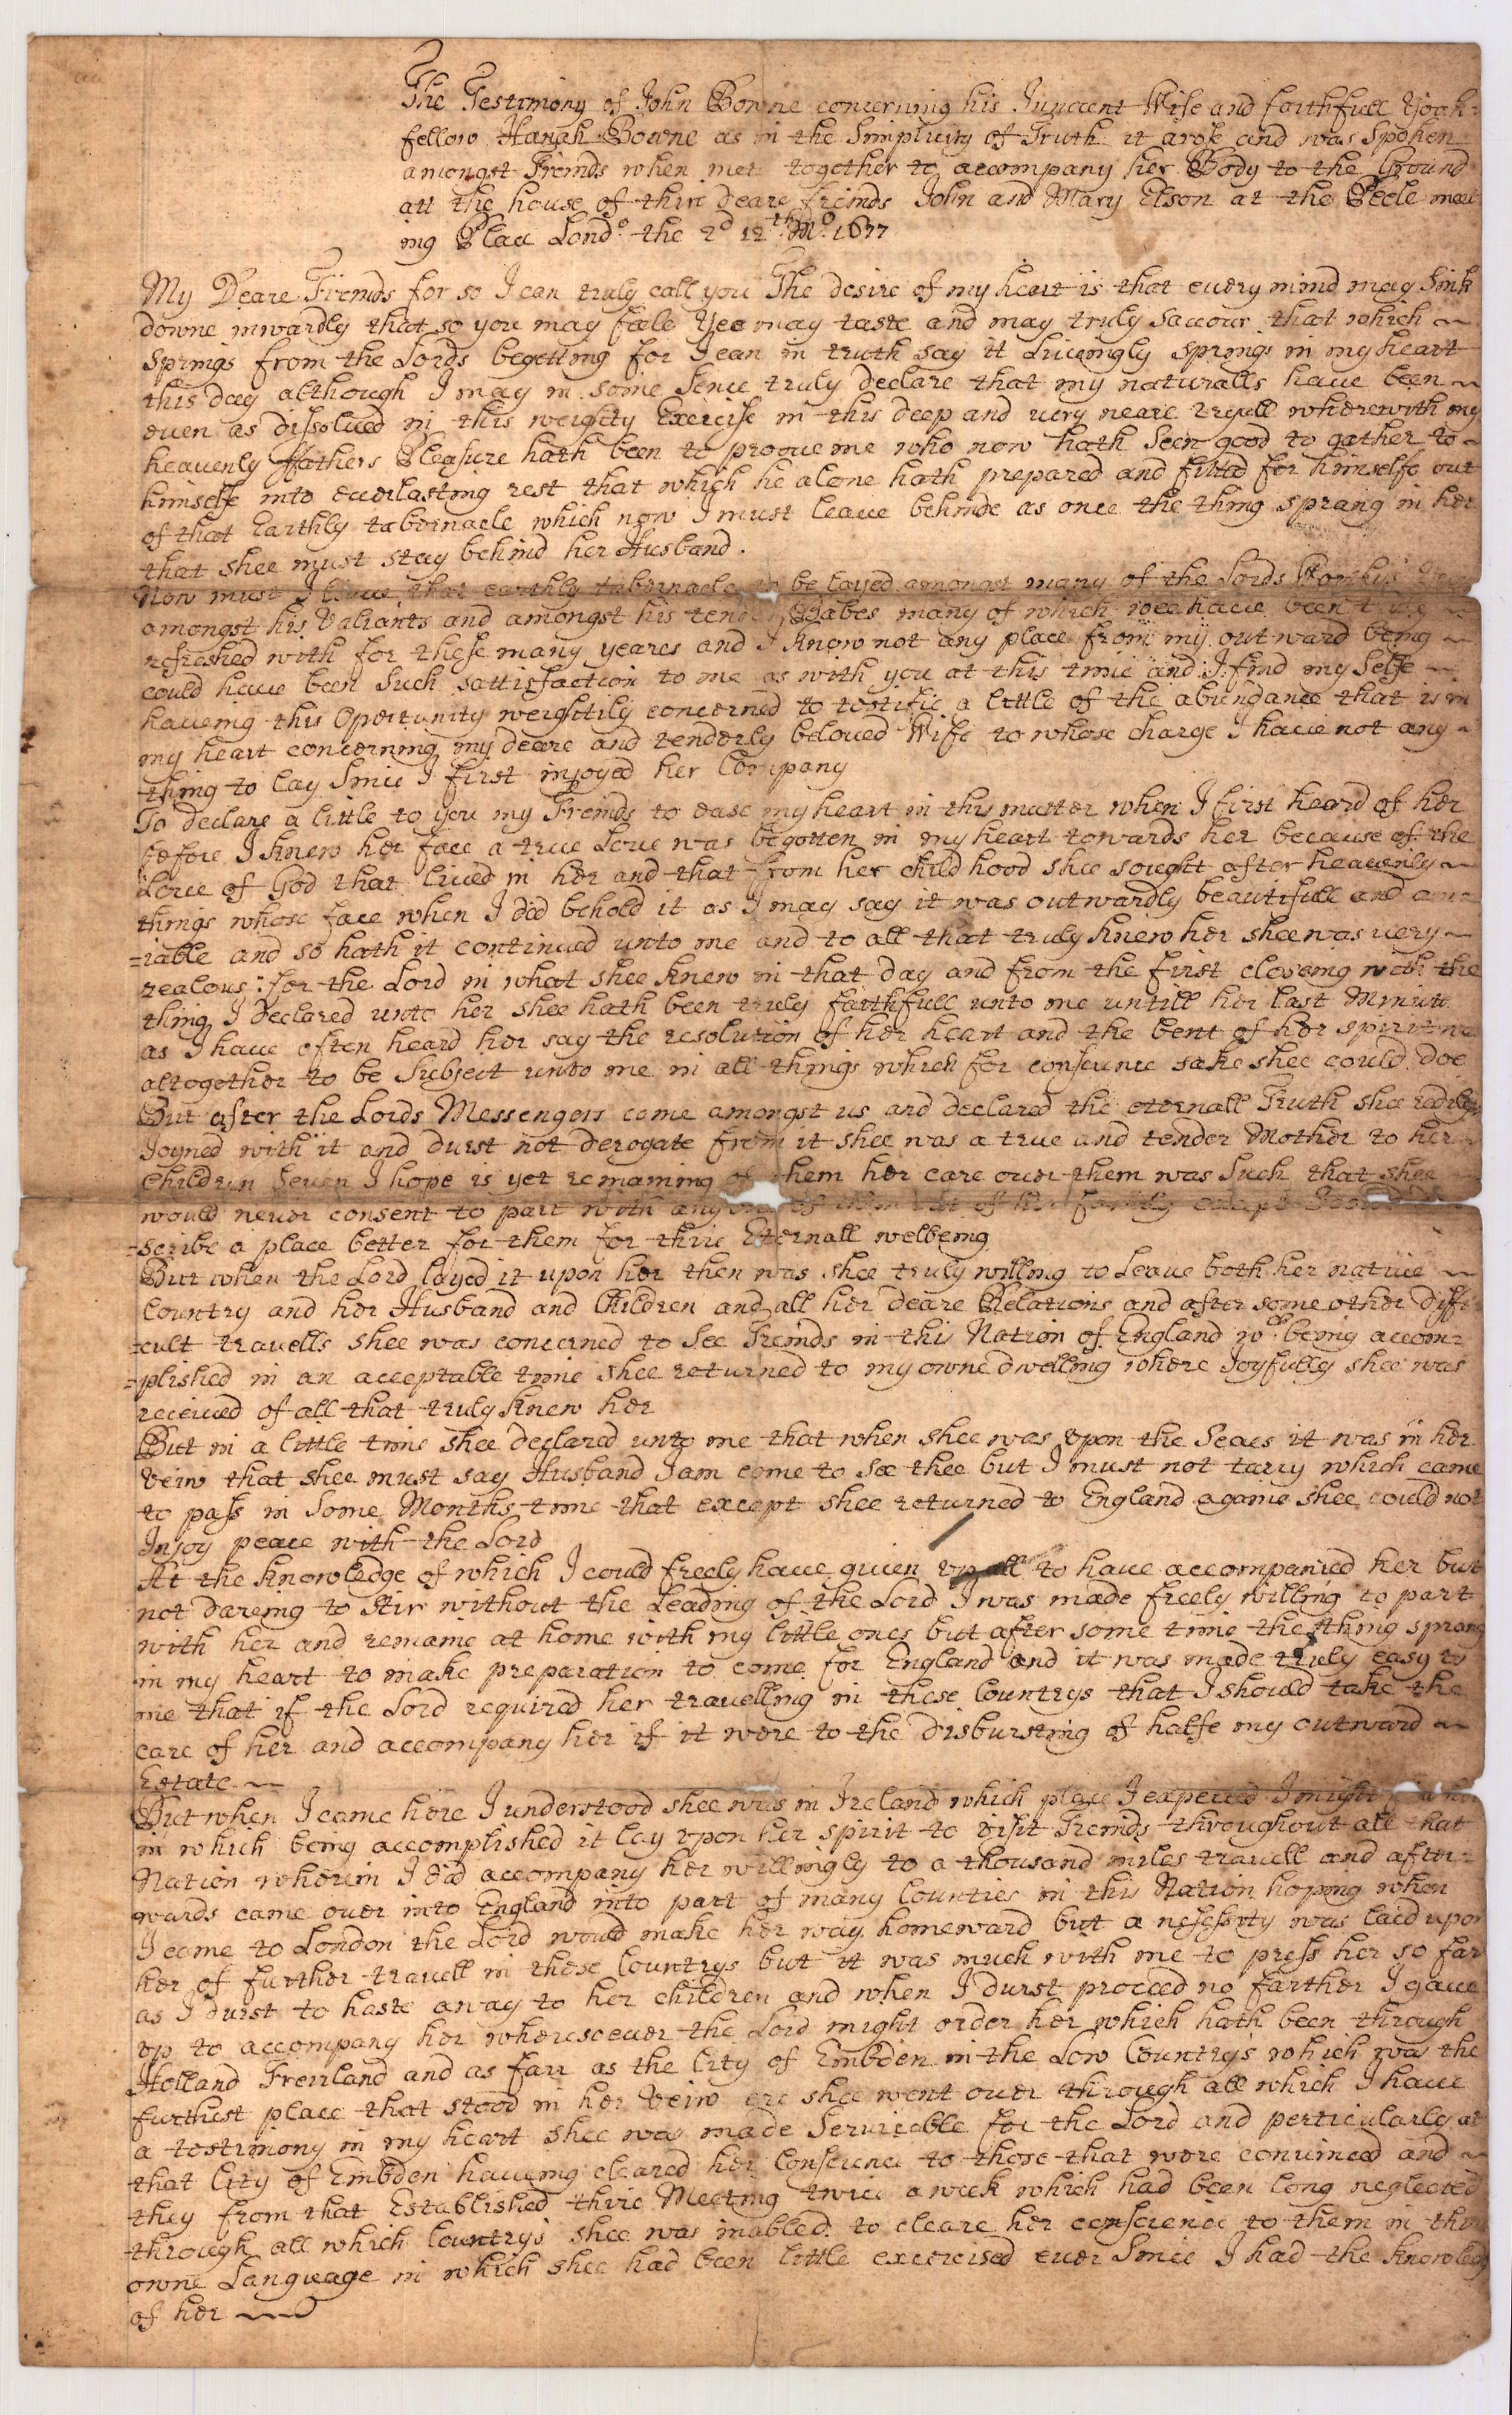 The Testimony of John Bowne concerning his Innocent Wife and faithfull Yoak=
fellow Hanah Bowne as in the Simplicity of Truth it arose and was Spoken
amongst Freinds when met together to accompany her Body to the Ground
att the house of thire deare freinds John and Mary Elson at the Peele meet
ing Place Londo. the 2d 12th Mo. 1677
My Deare Freinds for so I can truly call you The desire of my heart is that every mind may Sink
downe inwardly that so you may feele Yee may taste and may truly Savour that which
Springs from the Lords begetting for I can in truth say it Liveingly springs in my heart
this day although I may in some Sence truly declare that my naturalls have been
even as dissolved in this weighty Exercise in this deep and very neare tryall wherewith my
heavenly ffathers Pleasure hath been to proove me who now hath Seen good to gather to
himselfe into everlasting rest that which he alone hath prepared and fitted for himselfe out
of that Earthly tabernacle which now I must leave behinde as once the thing sprang in her
that shee must stay behind her Husband.
Now must I leave that earthly tabernacle to be layed amongst many of the Lords Worthys
amongst his Valiants and amongst his tender Babes many of which wee have been truly
refreshed with for these many yeares and I know not any place from my outward being
could have been Such sattisfaction to me as with you at this time and I find my Selfe
haveing this Oportunity weightily concerned to testifie a little of the abundance that is in
my heart concerning my deare and tenderly beloved Wife to whose charge I have not any
thing to lay Since I first injoyed her Company
To declare a little to you my Freinds to ease my heart in this matter when I first heard of her
before I knew her face a true Love was begotten in my heart towards her because of the
Love of God that lived in her and that from her child hood shee sought after heavenly
things whose face when I did behold it as I may say it was outwardly beautifull and am
=iable and so hath it continued unto me and to all that truly knew her shee was very
zealous: for the Lord in what shee knew in that day and from the first closeing with the
thing I declared unto her shee hath been truly faithfull unto me untill her last Minute
as I have often heard her say the resolution of her heart and the bent of her spirit was
altogether to be Subject unto me in all things which for conscience sake shee could doe
But after the Lords Messengers came amongst us and declared the eternall Truth shee redily
Joyned with it and durst not derogate from it shee was a true and tender Mother to her
Children Seven I hope is yet remaining of them her care over them was Such that shee
would never consent to part with any of them out of her family except
=scribe a place better for them for thire Eternall welbeing
But when the Lord layed it upon her then was shee truly willing to Leave both her native
Country and her Husband and Children and all her deare Relations and after some other diffi
=cult travells shee was concerned to See Freinds in this Nation of England wch being accom=
=plished in an acceptable time shee returned to my owne dwelling where Joyfully shee was
received of all that truly knew her
But in a little time shee declared unto me that when shee was upon the Seaes it was in her
veiw that shee must say Husband I am come to See thee but I must not tarry which came
to pass in Some Months time that except shee returned to England againe shee could not
Injoy peace with the Lord
At the knowledge of which I could freely have given up all to have accompanied her but
not dareing to Stir without the Leading of the Lord I was made freely willing to part
with her and remaine at home with my little ones but after some time the thing sprang
in my heart to make preparation to come for England and it was made truly easy to
me that if the Lord required her travelling in these Countrys that I should take the
care of her and accompany her if it were to the disbursting of halfe my outward
Estate
But when I came here I understood shee was in Ireland which place I expected I might
in which being accomplished it lay upon her spirit to visit Freinds throughout all that
Nation wherein I did accompany her willingly to a thousand miles travell and after=
wards came over into England into part of many Counties in this Nation hoping when
I came to London the Lord would make her way homeward but a nesessity was laid upon
her of further travell in these Countrys but it was much with me to press her so far
as I durst to haste away to her children and when I durst proceed no farther I gave
up to accompany her wheresoever the Lord might order her which hath been through
Holland Freizland and as farr as the City of Embden in the Low Countrys which was the
furthest place that stood in her veiw ere shee went over through all which I have
a testimony in my heart shee was made Serviceable for the Lord and perticularly at
that City of Embden haveing cleared her Conscience to those that were convinced and
they from that Established thire Meeting twice a week which had been long neglected
through all which Countrys shee was inabled to cleare her conscience to them in thire
owne Language in which shee had been little excercised ever Since I had the knowledg
of her